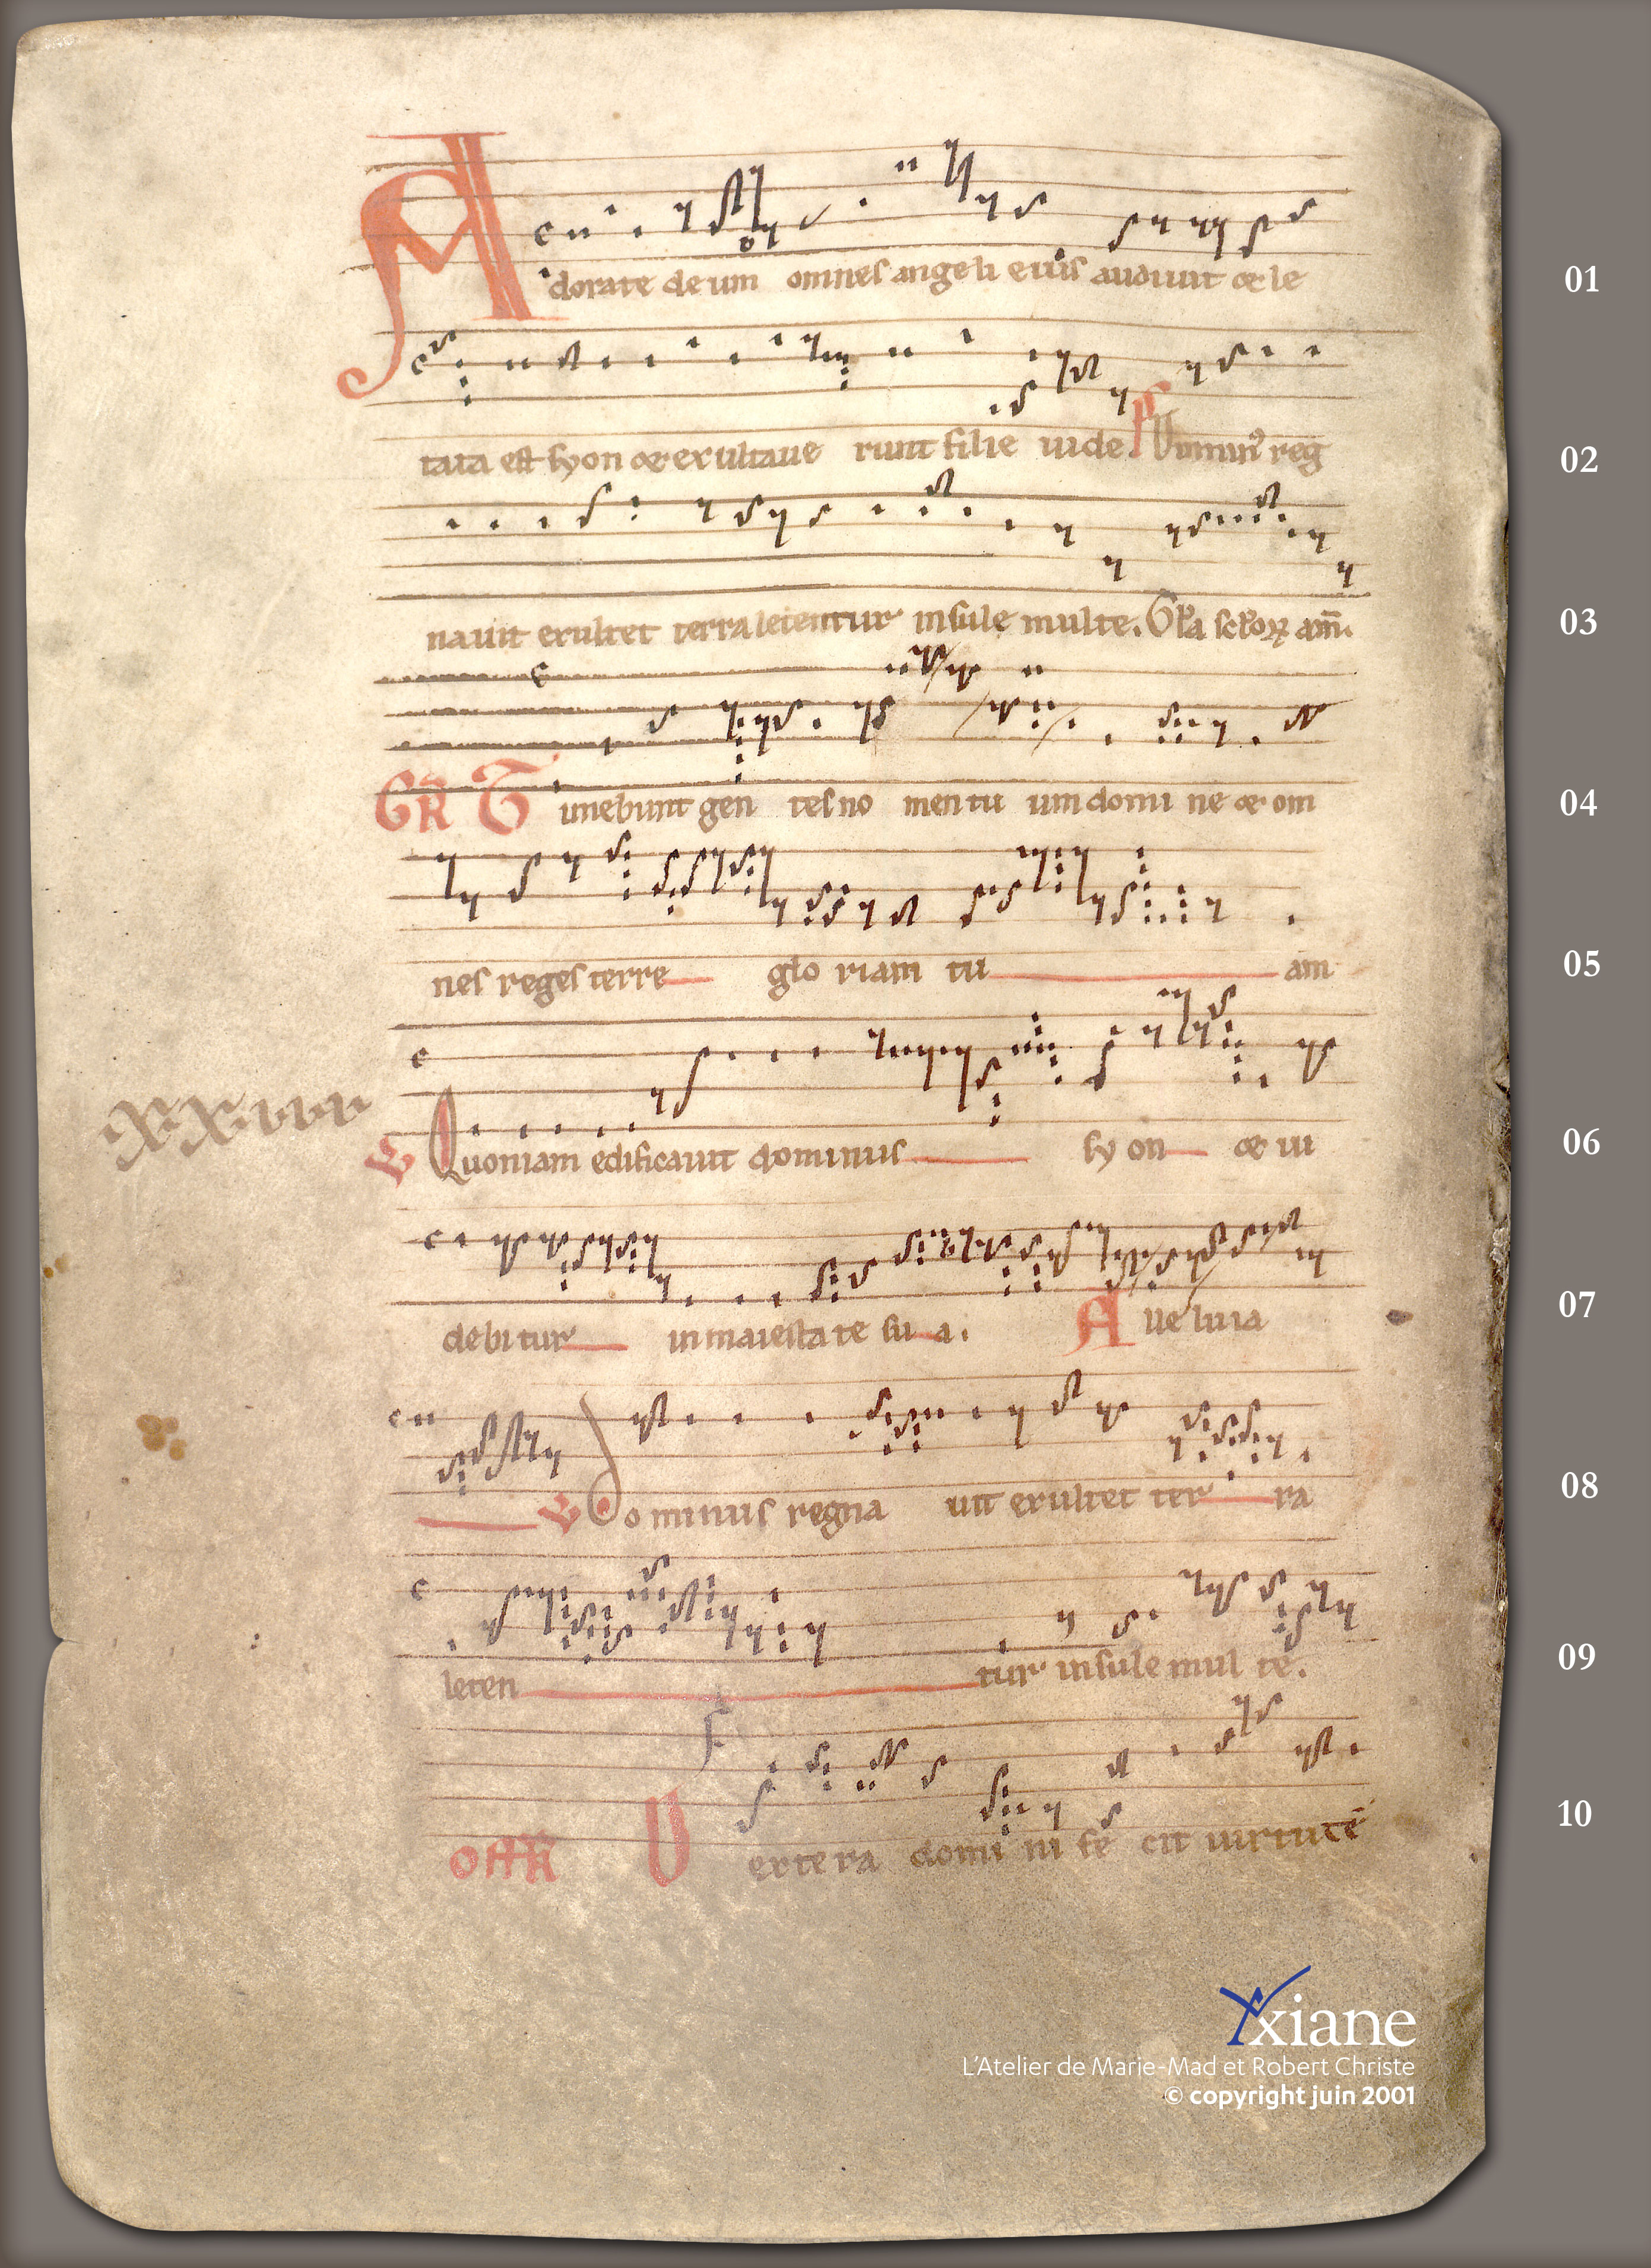 Adorate deum omnes angeli eius audiuit & le 01
tata est syon & exultaue runt filie iude. Ps Domin9 reg 02
nauit exultet terra letentur insule multe. Gl'a sclorꝝ am̅. 03
GR Timebunt gen tes no men tu um domi ne & om 04
nes reges terre glo riam tu am 05
xxiiii
V Quoniam edificauit dominus sy on & ui 06
debi tur in maiesta te su a. A lle luia 07
V Do minus regna uit exultet ter ra 08
leten tur insule mul te. 09
OFFR D exte ra domi ni fe cit uirtutē 10
Axiane
L'Atelier de Marie-Mad et Robert Christe
© copyright juin 2001